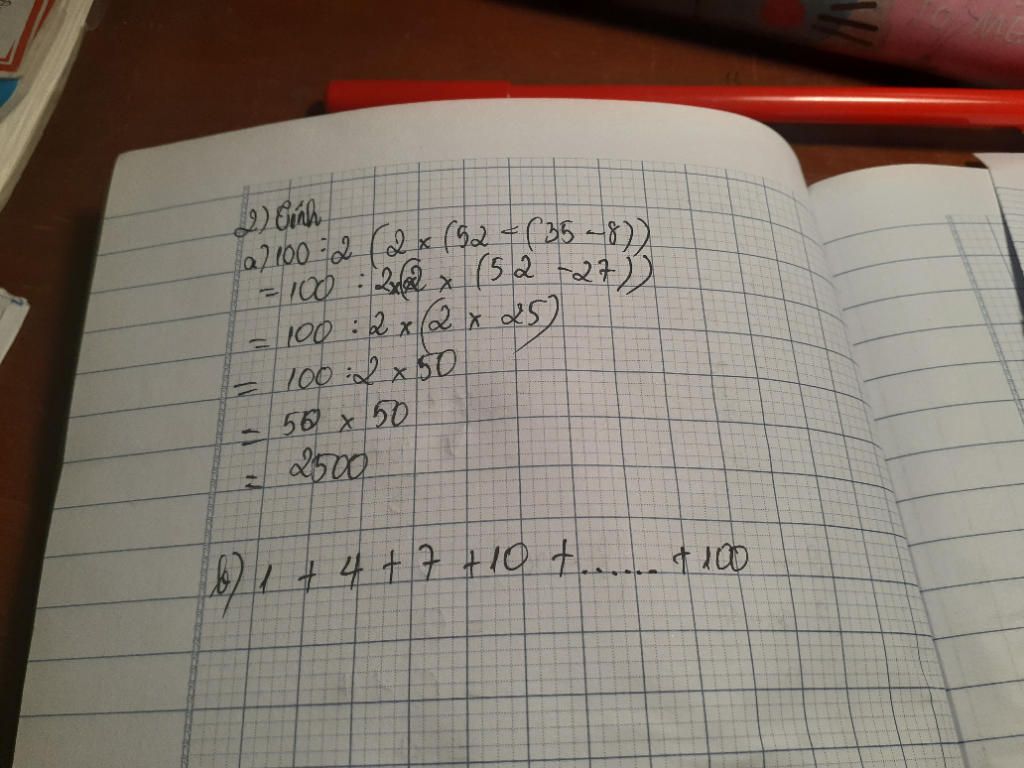 2) Tính
a) 100 : 2 (2 × (52 - (35 - 8))
= 100 : 2 × (2 × (52 - 27))
= 100 : 2 × (2 × 25)
= 100 : 2 × 50
= 50 × 50
= 2500
b) 1 + 4 + 7 + 10 + ...... + 100